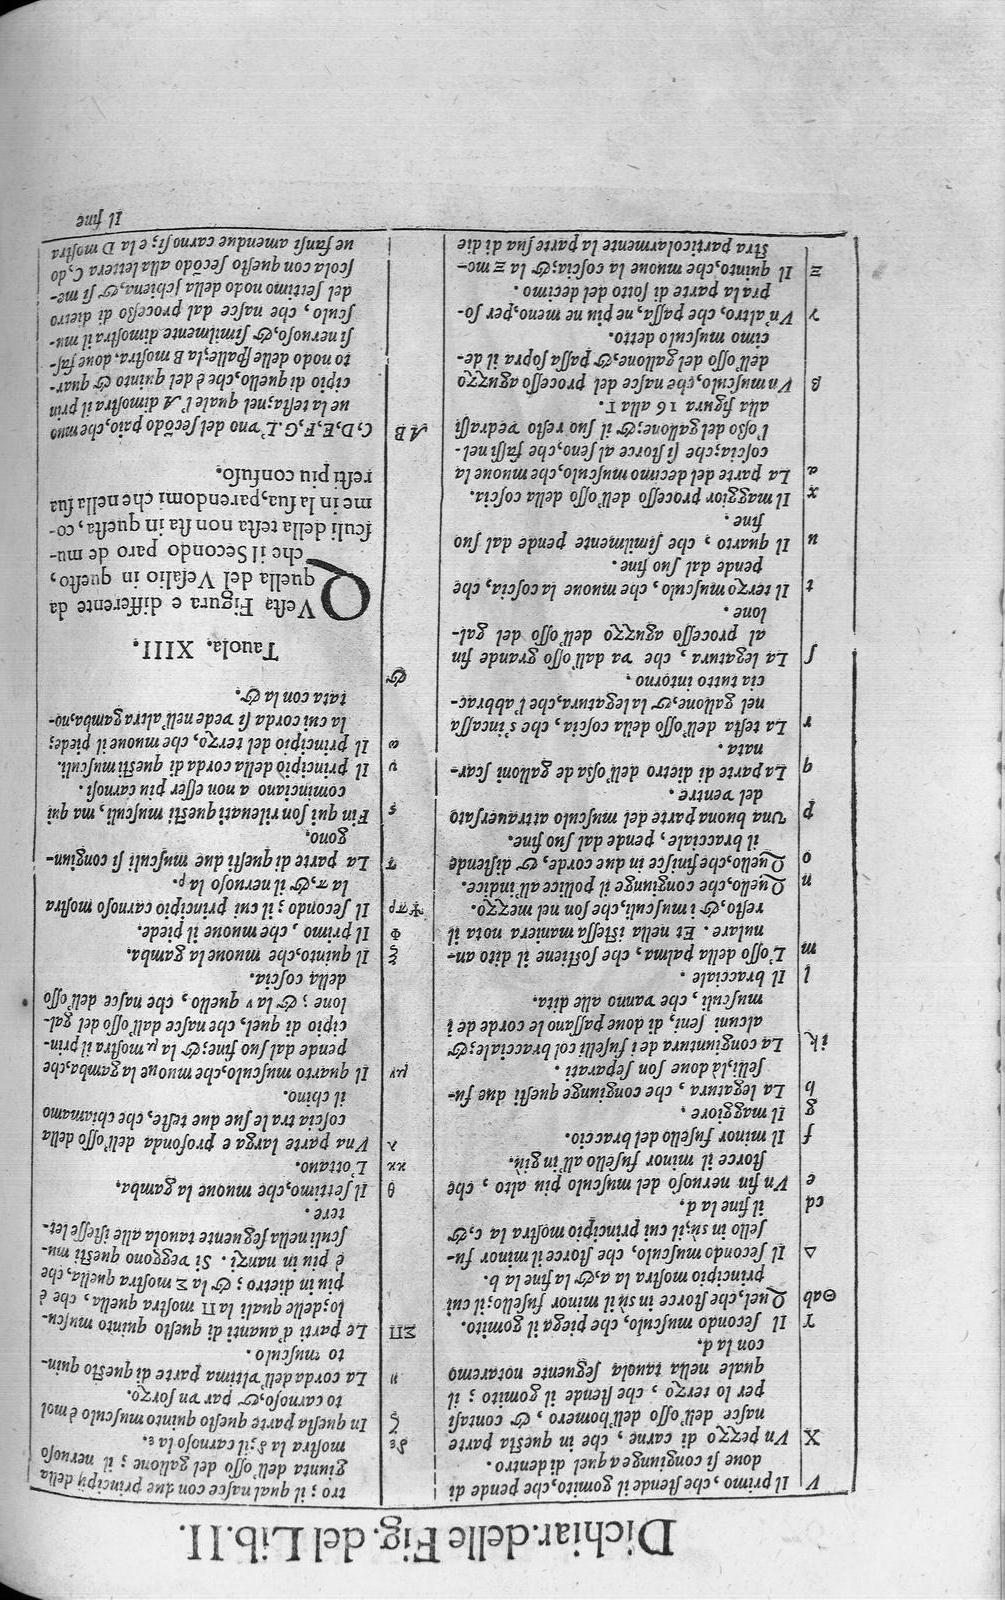 Dichiar. delle Fig. del Lib. II.
V Il primo, che ſtende il gomito, che pende di
done ſi congiunge a quel di dentro.
X Vn pezzo di carne, che in queſta parte
naſce dell'oſſo dell'homero, & contaſi
per lo terzo, che ſtende il gomito; il
quale nella tauola ſeguente notaremo
con la d.
Υ Il ſecondo muſculo, che piega il gomito.
Θab Quel, che ſtorce in sù il minor fuſello; il cui
principio moſtra la a, & la fine la b.
Δ Il ſecondo muſculo, che ſtorce il minor fu-
ſello in sù; il cui principio moſtra la c, &
cd il fine la d.
e Vn fin neruoſo del muſculo piu alto, che
ſtorce il minor fuſello all'in giù.
f Il minor fuſello del braccio.
g Il maggiore.
h La legatura, che congiunge queſti due fu-
ſelli, là doue ſon ſeparati.
ik La congiuntura de i fuſelli col bracciale; &
alcuni ſeni, di doue paſſano le corde de i
muſculi, che vanno alle dita.
l Il bracciale.
m L'oſſo della palma, che ſoſtiene il dito an-
nulare. Et nella iſteſſa maniera nota il
reſto, & i muſculi, che ſon nel mezzo.
n Quello, che congiunge il pollice all'indice.
o Quello, che finiſce in due corde, & diſtende
il bracciale, pende dal ſuo fine.
p Vna buona parte del muſculo attrauerſato
del ventre.
q La parte di dietro dell'oſſa de galloni ſcar-
nata.
r La teſta dell'oſſo della coſcia, che s'incaſſa
nel gallone, & la legatura, che l'abbrac-
cia tutto intorno.
ſ La legatura, che va dall'oſſo grande fin
al proceſſo aguzzo dell'oſſo del gal-
lone.
t Il terzo muſculo, che muoue la coſcia, che
pende dal ſuo fine.
u Il quarto, che ſimilmente pende dal ſuo
fine.
x Il maggior proceſſo dell'oſſo della coſcia.
α La parte del decimo muſculo, che muoue la
coſcia; che ſi ſtorce al ſeno, che faſſi nel-
l'oſſo del gallone; & il ſuo reſto vedraſſi
alla figura 16 alla Γ.
β Vn muſculo, che naſce del proceſſo aguzzo
dell'oſſo del gallone, & paſſa ſopra il de-
cimo muſculo detto.
γ Vn'altro, che paſſa, ne piu ne meno, per ſo-
pra la parte di ſotto del decimo.
Ξ Il quinto, che muoue la coſcia; & la Ξ mo-
ſtra particolarmente la parte ſua di die
tro; il qual naſce con due principij della
giunta dell'oſſo del gallone; il neruoſo
δε moſtra la δ; il carnoſo la ε.
ζ In queſta parte queſto quinto muſculo è mol
to carnoſo, & par vn ſorzo.
η La corda dell'vltima parte di queſto quin-
to muſculo.
ΣΠ Le parti d'auanti di queſto quinto muſcu-
lo; delle quali la Π moſtra quella, che è
piu in dietro; & la Σ moſtra quella, che
è piu in nanzi. Si veggono queſti mu-
ſculi nella ſeguente tauola alle iſteſſe let-
tere.
θ Il ſettimo, che muoue la gamba.
κκ L'ottauo.
λ Vna parte larga e profonda dell'oſſo della
coſcia tra le ſue due teſte, che chiamamo
il chino.
μν Il quarto muſculo, che muoue la gamba, che
pende dal ſuo fine; & la μ moſtra il prin-
cipio di quel, che naſce dall'oſſo del gal-
lone; & la ν quello, che naſce dell'oſſo
della coſcia.
ξ Il quinto, che muoue la gamba.
Φ Il primo, che muoue il piede.
Ψπρ Il ſecondo; il cui principio carnoſo moſtra
la π, & il neruoſo la ρ.
τ La parte di queſti due muſculi ſi congiun-
gono.
ς Fin qui ſon rileuati queſti muſculi, ma qui
cominciano a non eſſer piu carnoſi.
υ Il principio della corda di queſti muſculi.
ω Il principio del terzo, che muoue il piede;
la cui corda ſi vede nell'altra gamba, no-
& tata con la &.
Tauola. XIII.
Queſta Figura e differente da
quella del Veſalio in queſto,
che il Secondo paro de mu-
ſculi della teſta non ſta in queſta, co-
me in la ſua, parendomi che nella ſua
reſti piu confuſo.
AB C, D, E, F, G. L'vno del ſecōdo paio, che muo
ue la teſta; nel quale l'A dimoſtra il prin
cipio di quello, che è del quinto & quar-
to nodo delle ſpalle; la B moſtra, doue faſ-
ſi neruoſo, & ſimilmente dimoſtra il mu-
ſculo, che naſce dal proceſſo di dietro
del ſettimo nodo della ſchiena, & ſi me-
ſcola con queſto ſecōdo alla lettera C, do
ue fanſi amendue carnoſi; e la D moſtra
Il fine